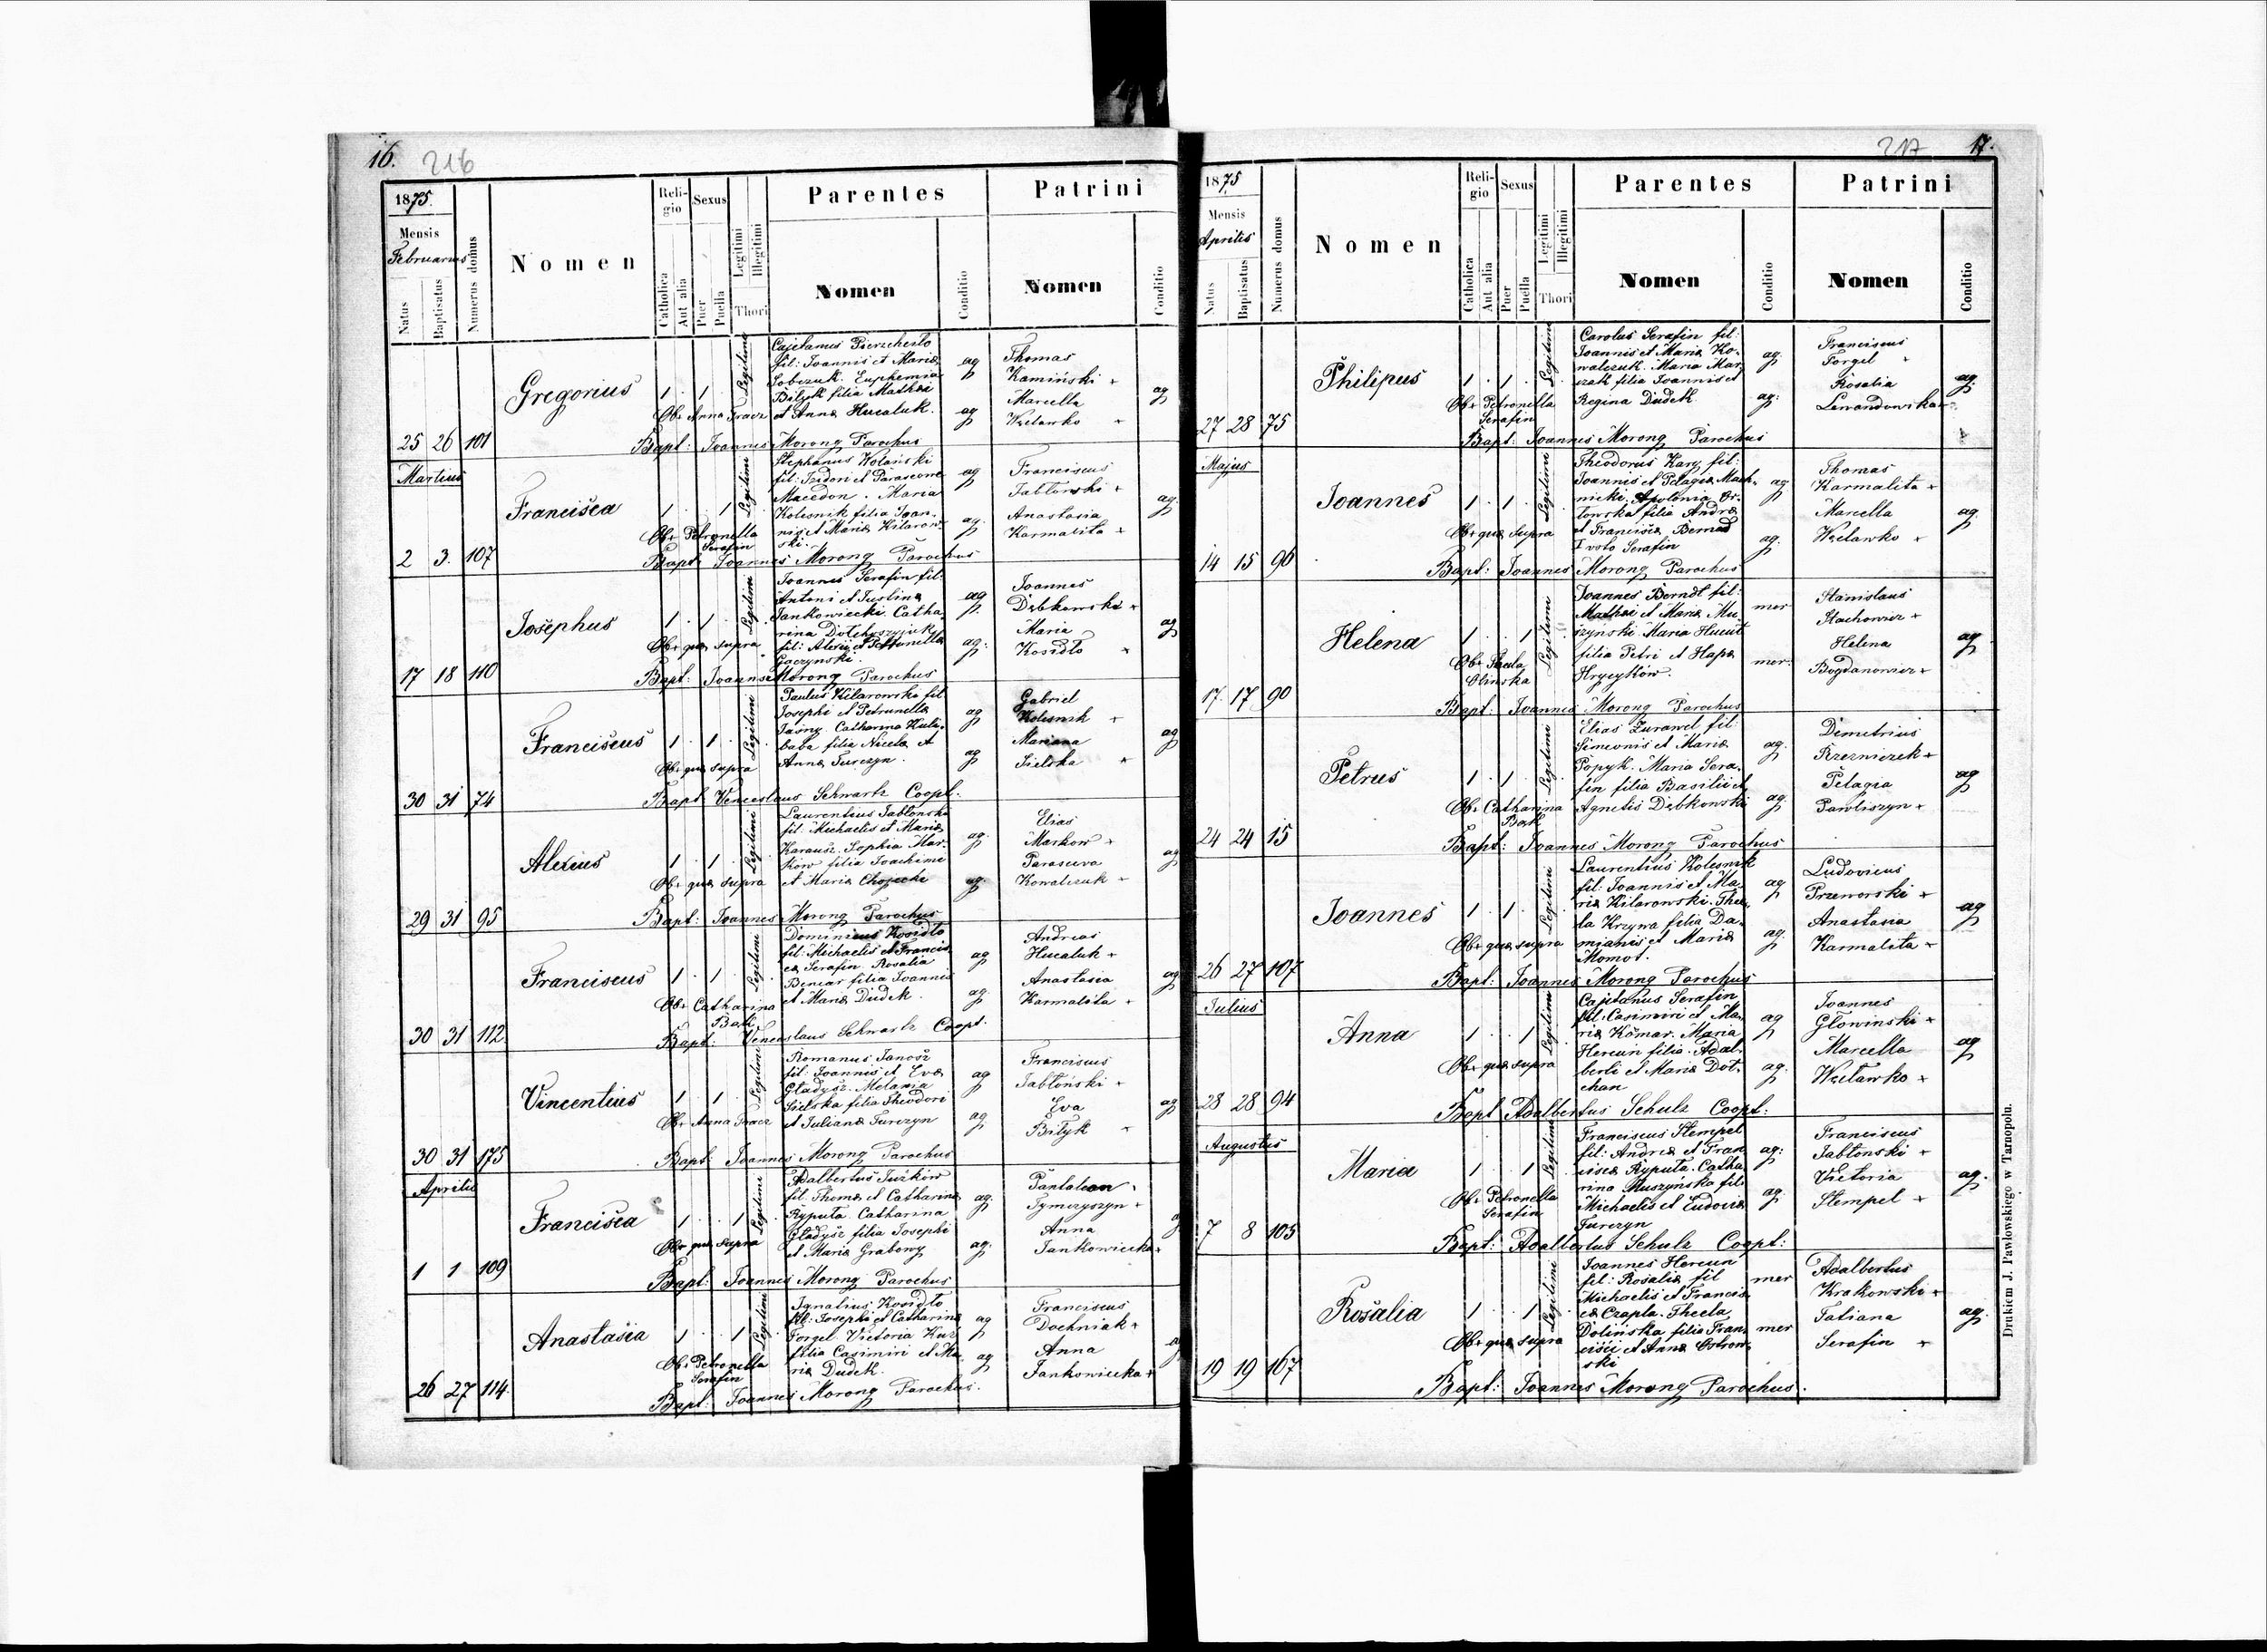 16. 216
1875.
Mensis
Februarius
Natus
Baptisatus
Numerus domus
Nomen
Religio
Catholica
Aut alia
Sexus
Puer
Puella
Legitimi
Illegitimi
Thori
Parentes
Nomen
Conditio
Patrini
Nomen
Conditio
25 26 101
Gregorius
1 . 1 .
Legitimi
Obs Anna Tracz
Cajetanus Pierzchało
fil: Joannis et Mariæ
Sobczuk. Euphemia
Bityk filia Mathæi
et Annæ Hucaluk.
ag
ag
Thomas
Kamiński +
Marcella
Wcełowko +
ag
Bapt: Joannes Morong Parochus
Martius
2 3. 107
Francisca
1 . . 1
Legitimi
Obs Petronella
Serafin
Stephanus Wolański
fil: Izidori et Parascevæ
Macedon. Maria
Kolesnik filia Joan-
nis et Mariæ Kilarow-
ski.
ag
ag.
Franciscus
Jabłonski +
Anastasia
Karmalita +
ag
Bapt: Joannes Morong Parochus
17 18 110
Josephus
1 . 1 .
Legitimi
Obs quæ supra
Joannes Serafin fil:
Antoni et Justinæ
Jankowiecki. Catha-
rina
fil: Alexii et Petronellæ
Gaczynski.
ag
ag:
Joannes
Dębkowski +
Maria
Kosidło +
ag
Bapt: Joannes Morong Parochus
30 31 74
Franciscus
1 . 1 .
Legitimi
Obs quæ supra
Paulus Kilarowski fil
Josephi et Petrunellæ
Jasny. Catharina Kuli-
baba filia Nicolæ et
Annæ Turczyn.
ag
ag
Gabriel
Kolesnik +
Mariana
Sielska +
ag
Bapt: Venceslaus Schwartz Coopt.
29 31 95
Alexius
1 . 1 .
Legitimi
Obs quæ supra
Laurentius Jabłonski
fil: Michaelis et Mariæ
Karausz. Sophia Mar-
ków filia Joachimi
et Mariæ Chojecki
ag.
ag.
Elias
Markow +
Parasceva
Kowalczuk +
ag
Bapt: Joannes Morong Parochus
30 31 112
Franciscus
1 . 1 .
Legitimi
Obs Catharina
Bartk
Dominicus Kosidło
fil: Michaelis et Francis-
cæ Serafin Rosalia
Benear filia Joannis
et Mariæ Dudek.
ag
ag
Andreas
Hucaluk +
Anastasia
Karmalita +
ag
Bapt: Venceslaus Schwartz Coopt.
30 31 175
Vincentius
1 . 1 .
Legitimi
Obs Anna Tracz
Romanus Janosz
fil: Joannis et Evæ
Gładysz. Melania
Sielska filia Theodori
et Julianæ Turczyn
ag
ag
Franciscus
Jabłoński +
Eva
Bityk +
ag
Bapt: Joannes Morong Parochus
Aprilis
1 1 109
Francisca
1 . . 1
Legitimi
Obs quæ supra
Adalbertus Juzków
fil: Thomæ et Catharinæ
Ryputa. Catharina
Gładysz filia Josephi
et Mariæ Grabowy
ag.
ag.
Pantaleon
Tymczyszyn +
Anna
Jankowiecka +
Bapt: Joannes Morong Parochus
26 27 114.
Anastasia
1 . . 1
Legitimi
Obs Petronella
Serafin
Ignatius Kosidło
fil: Josephi et Catharinæ
Forgel. Victoria Kuś
filia Casimiri et Ma-
riæ Dudek.
ag
ag
Franciscus
Dochniak +
Anna
Jankowiecka +
ag
Bapt: Joannes Morong Parochus.
217 17.
1875
Mensis
Aprilis
Natus
Baptisatus
Numerus domus
Nomen
Religio
Catholica
Aut alia
Sexus
Puer
Puella
Legitimi
Illegitimi
Thori
Parentes
Nomen
Conditio
Patrini
Nomen
Conditio
27 28 75
Philipus
1 . 1 .
Legitimi
Obs Petronella
Serafin
Carolus Serafin fil:
Joannis et Mariæ Ko-
walczuk. Maria Mar-
czak filia Joannis et
Regina Dudek
ag.
ag:
Franciscus
Forgel +
Rosalia
Lewandowska +
ag.
Bapt: Joannes Morong Parochus
Majus
14 15 96
Joannes
1 . 1 .
Legitimi
Obs quæ supra
Theodorus Kary fil:
Joannis et Pelagiæ Mach-
nicki. Apolonia Or-
łowska filia Andræ
et Franciscæ Bernad
I voto Serafin
ag
ag.
Thomas
Karmalita +
Marcella
Wcełowko +
ag.
Bapt: Joannes Morong Parochus
17. 17 90
Helena
1 . . 1
Legitimi
Obs Thecla
Olinska
Joannes Berndt fil:
Mathæi et Mariæ Mu-
szynski. Maria Hucuł
filia Petri et Hapæ
Hryeyków.
mer
mer:
Stanislaus
Stachowicz +
Helena
Bogdanowicz +
ag
Bapt: Joannes Morong Parochus
24 24 15
Petrus
1 . 1 .
Legitimi
Obs Catharina
Bartk
Elias Żurawel fil:
Simeonis et Mariæ
Popyk. Maria Sera-
fin filia Basilii et
Agnetis Dębkowski
ag.
ag.
Demetrius
Rzezniczek +
Pelagia
Pawliszyn +
ag
Bapt: Joannes Morong Parochus
26 27 107
Joannes
1 . 1 .
Legitimi
Obs quæ supra
Laurentius Kolesnik
fil: Joannis et Ma-
riæ Kilarowski. The-
la Krzywa filia Da-
mianis et Mariæ
Momot.
ag
ag.
Ludovicus
Przeworski +
Anastasia
Karmalita +
ag
Bapt: Joannes Morong Parochus
Julius
28 28 94
Anna
1 . . 1
Legitimi
Obs quæ supra
Cajetanus Serafin
fil: Casimiri et Ma-
riæ Komar. Maria
Hercun filia Adal-
berti et Mariæ Doł-
chan
ag
ag.
Joannes
Głowinski +
Marcella
Wcełowko +
ag
Bapt Adalbertus Schulz Coopt:
Augustus
7 8 105
Maria
1 . . 1
Legitimi
Obs Petronella
Serafin
Franciscus Stempel
fil: Andreæ et Fran-
ciscæ Ryputa. Catha-
rina Muszyńska fil:
Michaelis et Eudoxiæ
Turczyn
ag:
ag.
Franciscus
Jabłonski +
Victoria
Stempel +
ag.
Bapt: Adalbertus Schulz Coopt:
19 19 167
Rosalia
1 . . 1
Legitimi
Obs quæ supra
Joannes Hercun
fil: Rosaliæ fil
Michaelis et Francis-
cæ Czapla. Thecla
Dolińska filia Fran-
cisci et Annæ Ostrow-
ski
mer
mer
Adalbertus
Krakowski +
Tatiana
Serafin +
ag.
Bapt: Joannes Morong Parochus.
Drukiem J. Pawłowskiego w Tarnopolu.